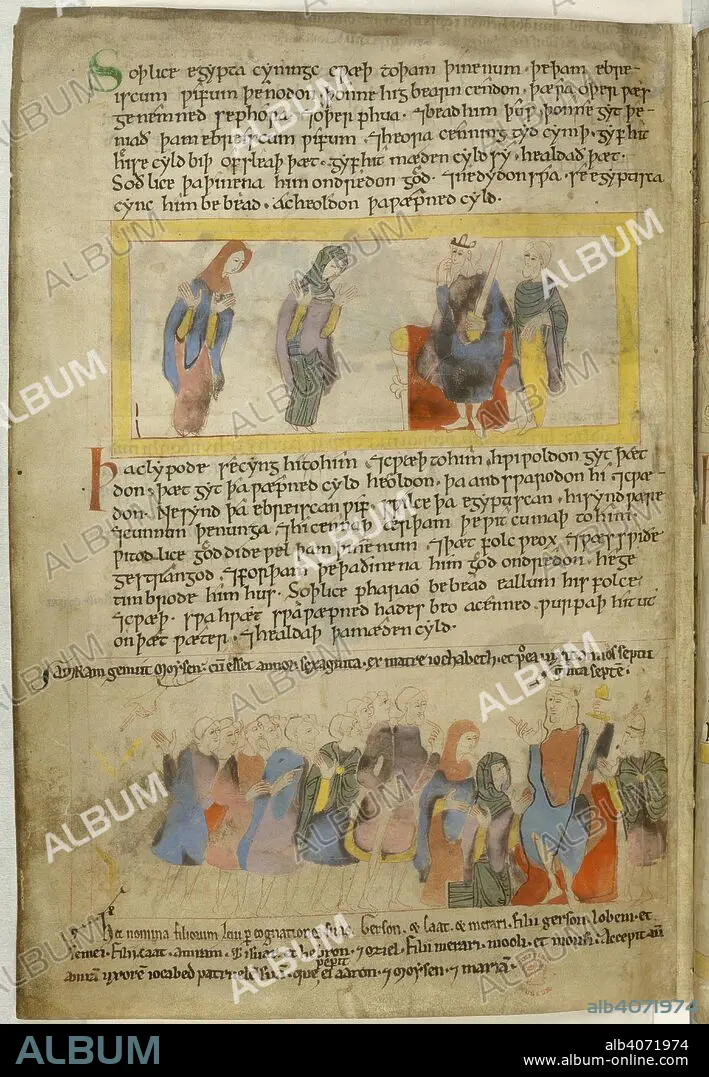 Soþlice egypta cyningc cƿæþ to þam þinenum · þe þam ebre-
iscum ƿifum þenodon · þonne hig bearn cendon · þæra oþer ƿæs
genemned sephora · ⁊ oþer phua · ⁊ bead him þus þonne gyt þe-
niaþ þam ebreiscum ƿifum · ⁊ heora cenning tyd cymþ · gyf hit
hyse cyld biþ ofsleaþ þæt · gyf hit mæden cyld sy · healdað þæt ·
Soðlice þa þinena him ondredon god · ⁊ ne dydon sƿa · se egyptisca
cync him bebead · ac heoldon þa ƿæpned cyld ·
ALBUM
Ða clypode se cyng hi to him · ⁊ cƿæþ to him · hƿi ƿoldon gyt þæt
don · þæt gyt þa ƿæpned cyld heoldon · þa andsƿarodon hi ⁊ cƿæ-
don · Ne synd þa ebreiscan ƿif sƿilce þa egyptiscan · hi synd sylfe
þenunga · ⁊ hi cennaþ ær þam þe ƿit cumaþ to him ·
ƿitodlice god dide ƿel þam þinenum · ⁊ þæt folc ƿeox · ⁊ ƿæs sƿiðe
gestrangod · ⁊ forþam þe þa þinena him god ondredon · he ge-
timbrode him hus · Soþlice pharao bebead eallum his folce
⁊ cƿæþ · sƿa hƿæt sƿa ƿæpned hades beo acenned · ƿurpaþ hit ut
on þæt ƿæter · ⁊ healdaþ þa mæden cyld ·
AMRam genuit Moysen · cum esset annorum sexaginta · ex matre iochabeth · et
septe
Hec nomina filiorum leui per cognationes suas · Gerson · & caat · & merari · filii gerson · lobeni · et
semei · Filii caat · amram · hebron · ⁊ oziel · Filii merari · mooli · et musi · Accepit autem
amram uxorem iocabed que peperit ei aaron · ⁊ Moysen · ⁊ mariam ·
alb4071974
ALBUM
alb4071974
www.album-online.com